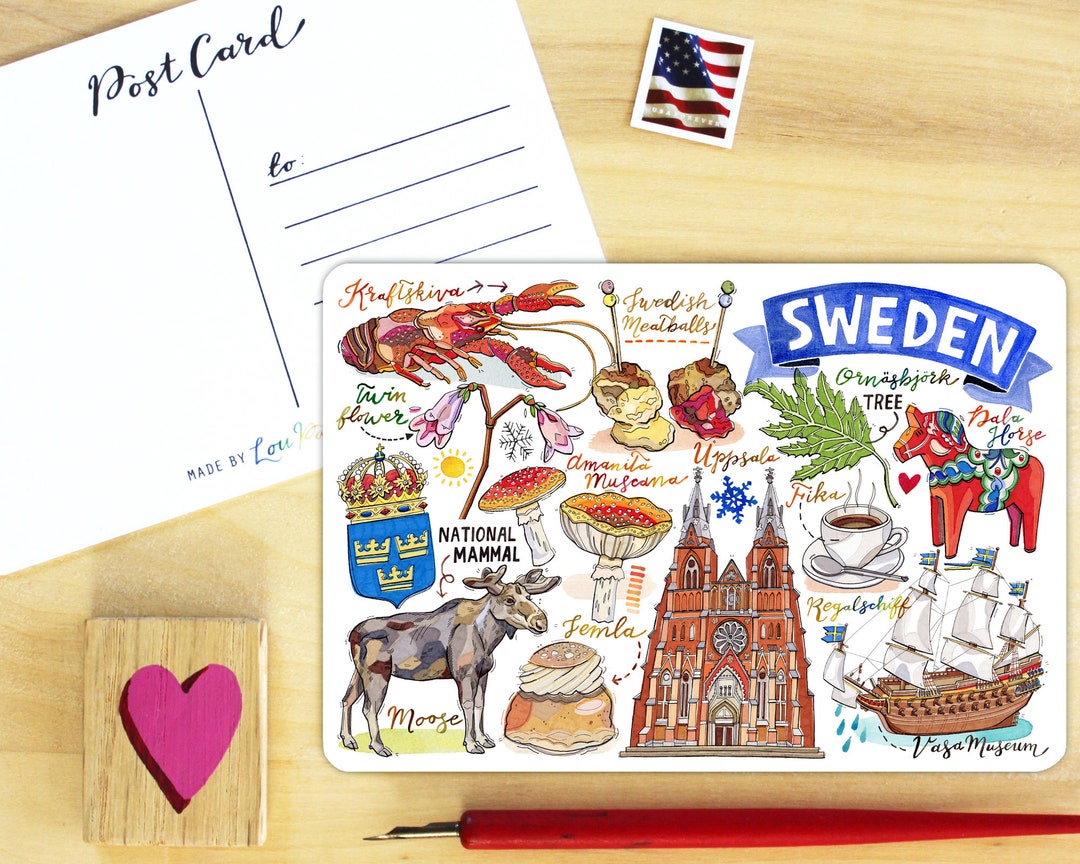 Post Card
to:
MADE BY Lou
USA FOREVER
Kraftskiva
Swedish
Meatballs
SWEDEN
Ornäsbjörk
TREE
Dala
Horse
Twin
flower
Amanita
Muscana
Uppsala
Fika
NATIONAL
MAMMAL
Regalschiff
Semla
Moose
Vasa Museum